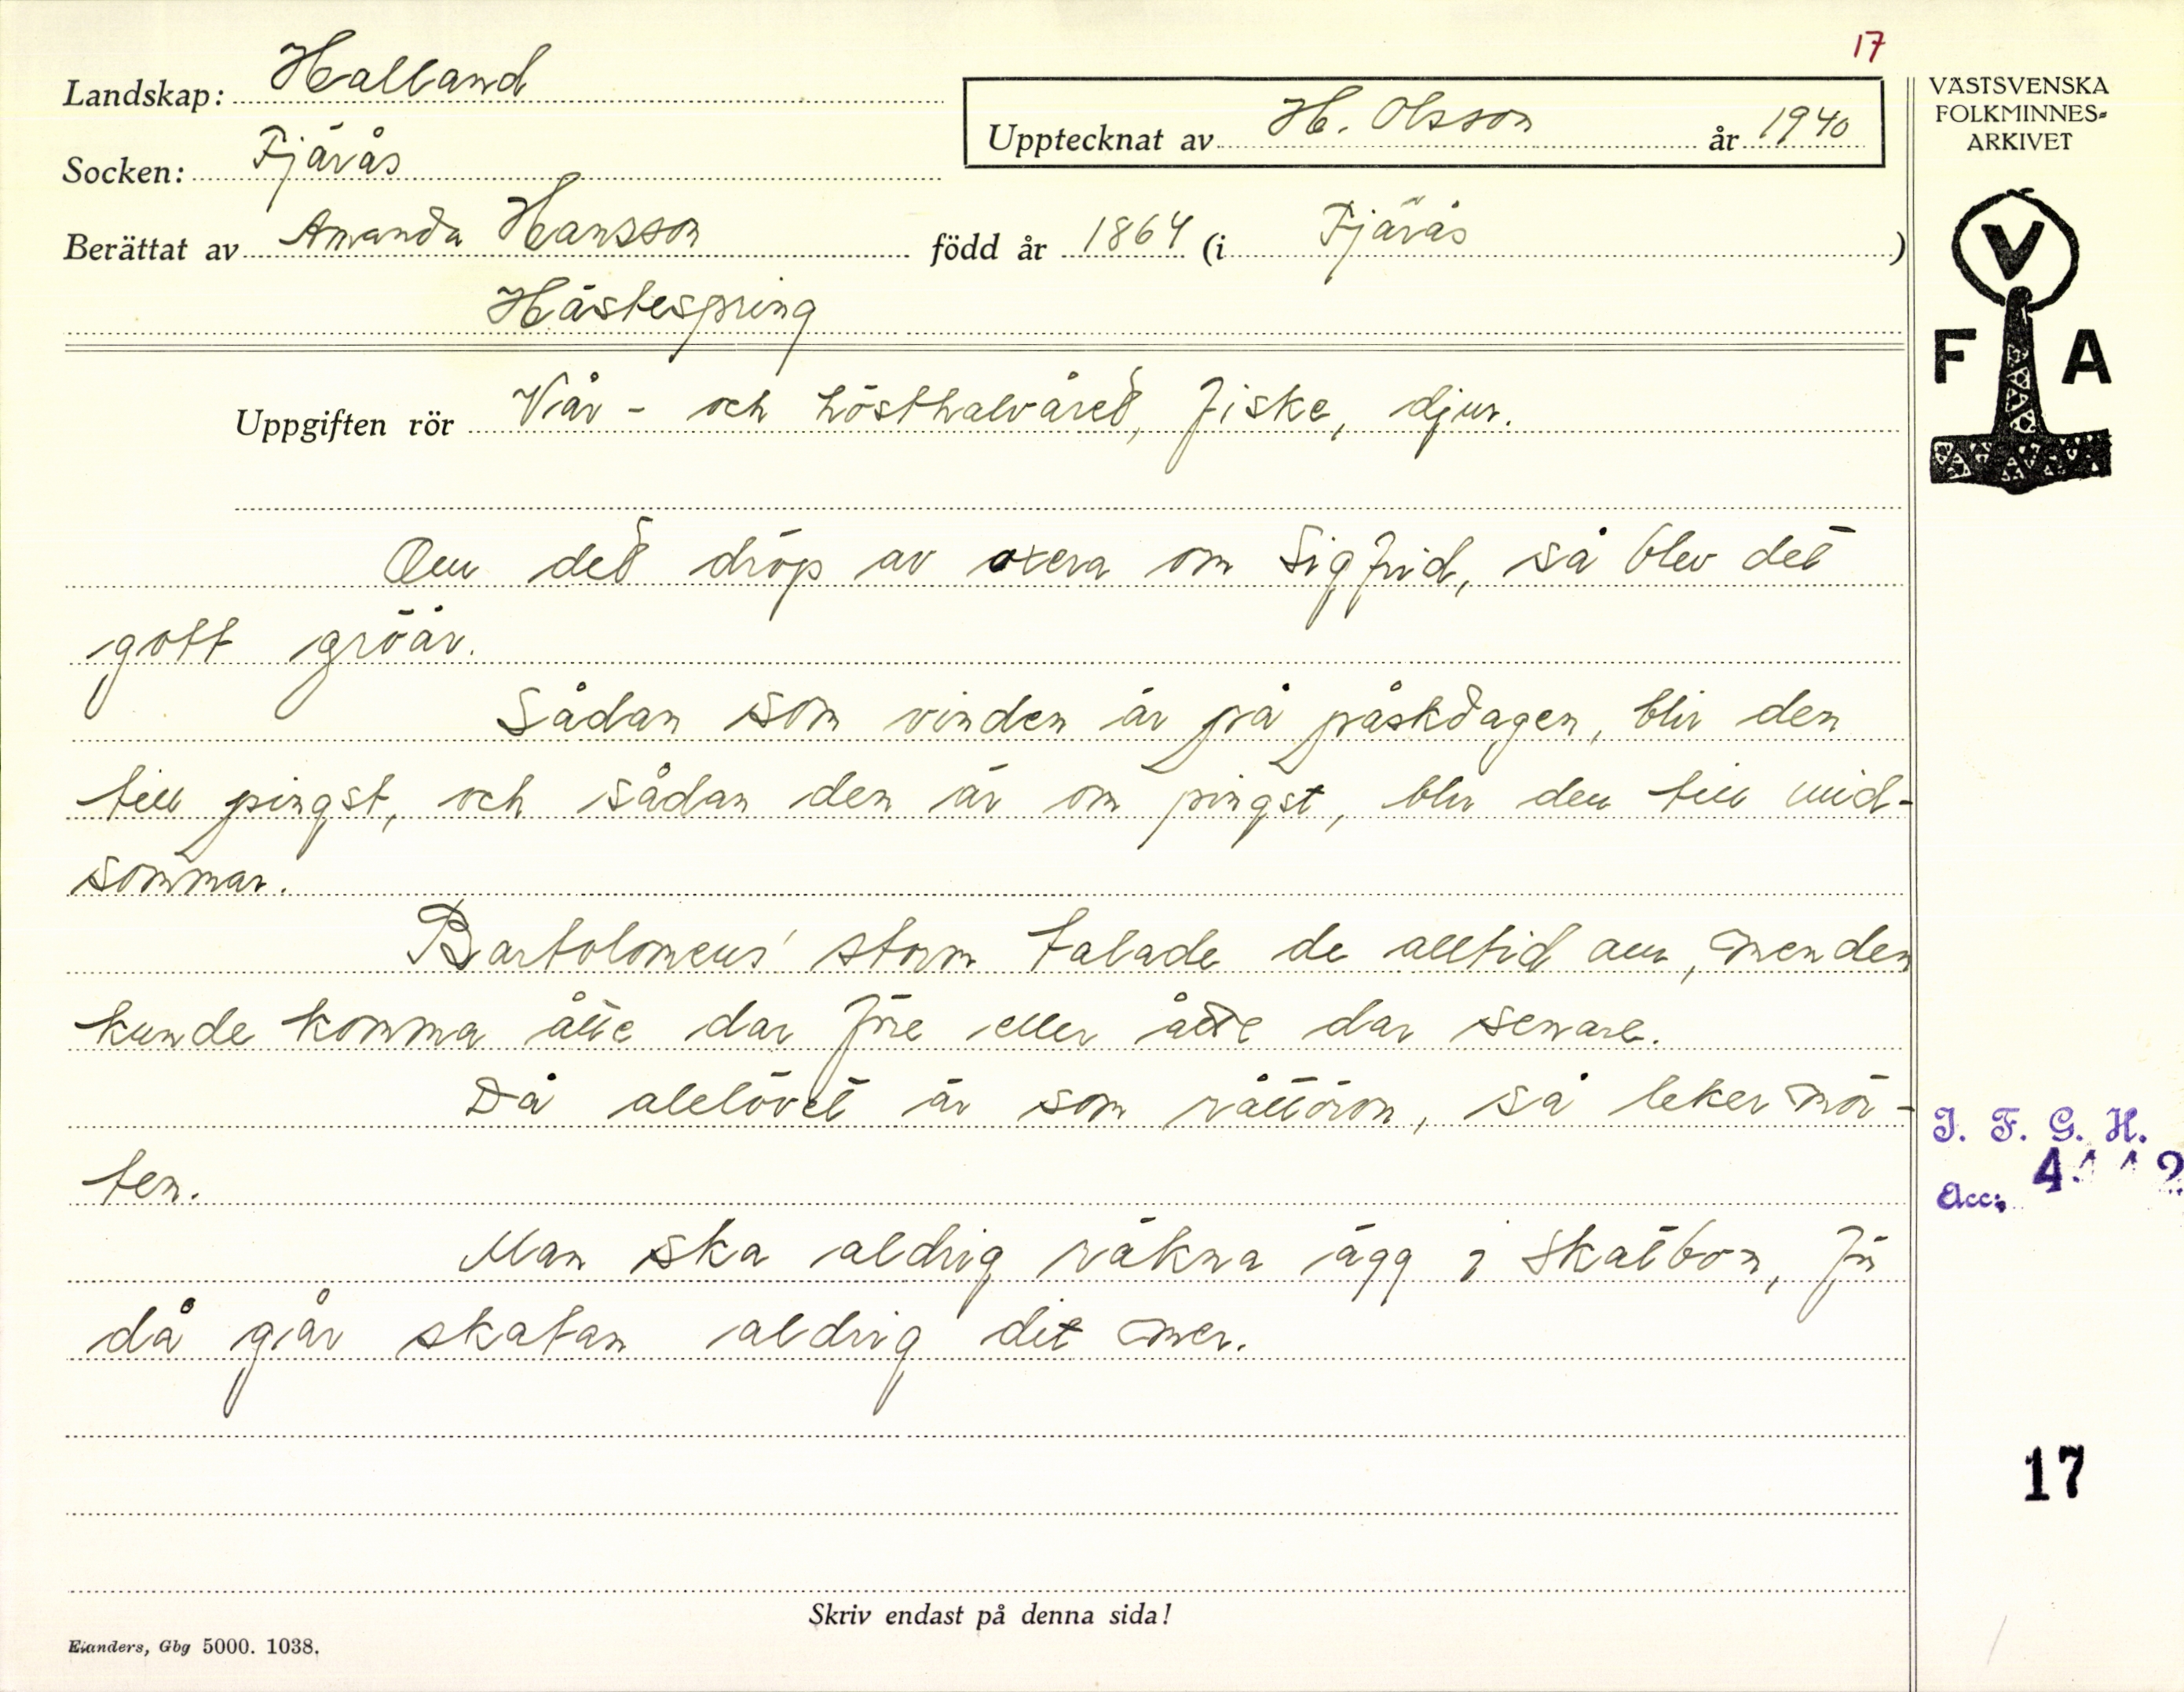 17
Landskap: Halland
Upptecknat av H. Olsson år 1940
VÄSTSVENSKA
FOLKMINNES-
ARKIVET
Socken: Fjärås
Berättat av Amanda Hansson född år 1864 (i Fjärås)
Hästespring
V
F A
Uppgiften rör Vår- och hösthalvåret, fiske, djur.
Om det dröp av oxera om Sigfrid, så blev det
gott gröår.
Sådan som vinden är på påskdagen, blir den
till pingst, och sådan den är om pingst, blir den till mid-
sommar.
Bartolomeus' storm talade de alltid om, men den
kunde komma åtte dar före eller åtte dar senare.
Då alelövet är som råttöron, så leker mör-
ten.
Man ska aldrig räkna ägg i skatbon, för
då går skatan aldrig dit mer.
I. F. G. H.
Acc.
17
Skriv endast på denna sida!
Elanders, Gbg 5000. 1038.